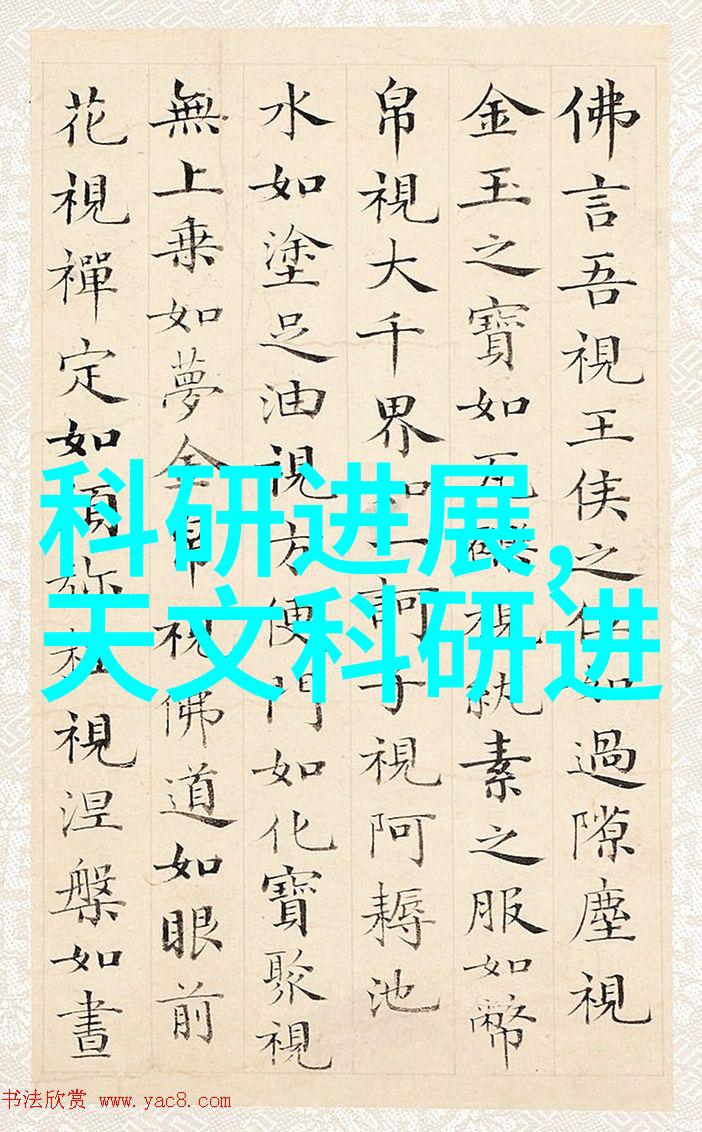 佛言吾視王侯之位如過隙塵視
金玉之寶如瓦礫視紈素之服如幣
帛視大千界如一訶子視阿耨池
水如塗足油視方便門如化寶聚視
無上乗如夢金帛視佛道如眼前
花視禪定如須弥柱視涅槃如晝
科研进展,
天文科研进
书法欣赏 www.yac8.com